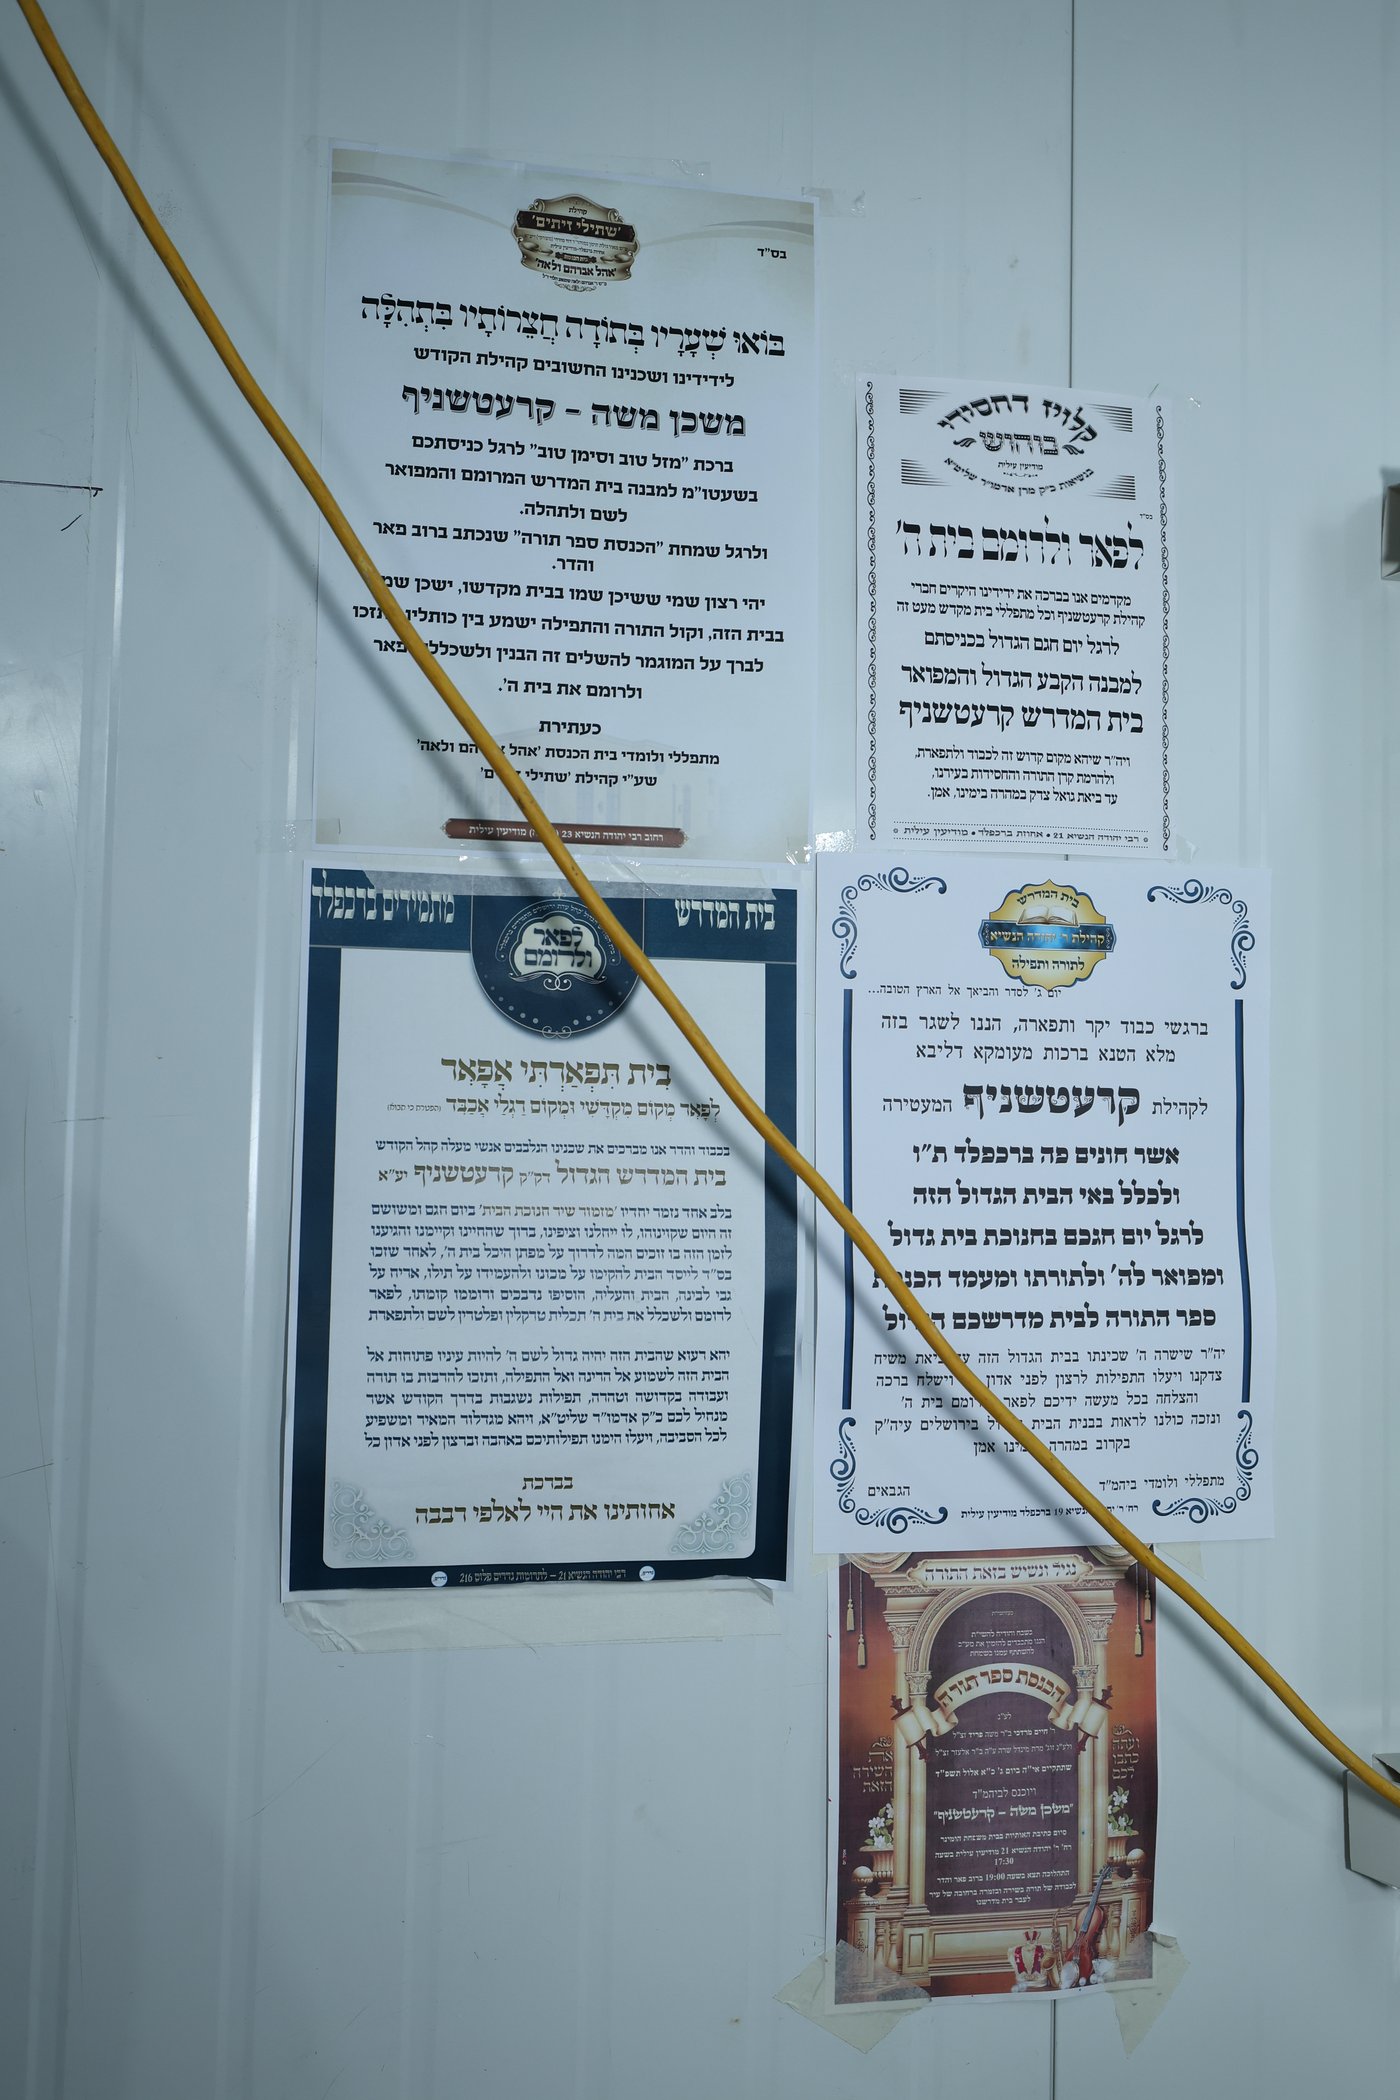 קהילת
'שתילי זיתים'
בית הכנסת
'אהל אברהם ולאה'
בס"ד
בּוֹאוּ שְׁעָרָיו בְּתוֹדָה חֲצֵרוֹתָיו בִּתְהִלָּה
לידידינו ושכנינו החשובים קהילת הקודש
משכן משה – קרעטשניף
ברכת "מזל טוב וסימן טוב" לרגל כניסתכם
בשעטו"מ למבנה בית המדרש המרומם והמפואר
לשם ולתהלה.
ולרגל שמחת "הכנסת ספר תורה" שנכתב ברוב פאר
והדר.
יהי רצון שמי ששיכן שמו בבית מקדשו, ישכן
בבית הזה, וקול התורה והתפילה ישמע בין כותליו
לברך על המוגמר להשלים זה הבנין ולשכללו
ולרומם את בית ה'.
כעתירת
מתפללי ולומדי בית הכנסת 'אהל ולאה'
שע"י קהילת 'שתילי זיתים'
רחוב רבי יהודה הנשיא 23 מודיעין עילית
קלויז דחסידי
בוהוש
מודיעין עילית
בנשיאות כ"ק מרן אדמו"ר שליט"א
בס"ד
לפאר ולרומם בית ה'
מקדמים אנו בברכה את ידידינו היקרים חברי
קהילת קרעטשניף וכל מתפללי בית מקדש מעט זה
לרגל יום חגם הגדול בכניסתם
למבנה הקבע הגדול והמפואר
בית המדרש קרעטשניף
ויה"ר שיהא מקום קדוש זה לכבוד ולתפארת,
ולהרמת קרן התורה והחסידות בעירנו,
עד ביאת גואל צדק במהרה בימינו, אמן.
רבי יהודה הנשיא 21 • אחוזת ברכפלד • מודיעין עילית
בית המדרש מתמידים ברכפלד
לפאר
ולרומם
בֵּית תִּפְאַרְתִּי אֲפָאֵר
לְפָאֵר מְקוֹם מִקְדָּשִׁי וּמְקוֹם רַגְלַי אֲכַבֵּד
בכבוד והדר אנו מברכים את שכנינו הנלבבים אנשי מעלה קהל הקודש
בית המדרש הגדול דק"ק קרעטשניף יע"א
בלב אחד נזמר יחדיו 'מזמור שיר חנוכת הבית' ביום חגם ומשושם
זה היום שקוינוהו, לו ייחלנו וציפינו, ברוך שהחיינו וקיימנו והגיענו
לזמן הזה בו זוכים המה לדרוך על מפתן היכל בית ה', לאחר שזכו
בס"ד לייסד הבית להקימו על מכונו ולהעמידו על תילו, אריח על
גבי לבינה, הבית והעליה, הוסיפו נדבכים ורוממו קומתו, לפאר
לרומם ולשכלל את בית ה' תכלית טרקלין ופלטרין לשם ולתפארת
יהא רעוא שהבית הזה יהיה גדול לשם ה' להיות עיניו פתוחות אל
הבית הזה לשמוע אל הרינה ואל התפילה, ותזכו להרבות בו תורה
ועבודה בקדושה וטהרה, תפילות נשגבות בדרך הקודש אשר
מנחיל לכם כ"ק אדמו"ר שליט"א, ויהא מגדלור המאיר ומשפיע
לכל הסביבה, ויעלו הימנו תפילותיכם באהבה וברצון לפני אדון כל
בברכת
אחותינו את היי לאלפי רבבה
רבי יהודה הנשיא 21 – לתרומות נדרים פלוס 216
בית המדרש
קהילת ר' יהודה הנשיא
לתורה ותפילה
יום ג' לסדר והביאך אל הארץ הטובה...
ברגשי כבוד יקר ותפארה, הננו לשגר בזה
מלא הטנא ברכות מעומקא דליבא
לקהילת קרעטשניף המעטירה
אשר חונים פה ברכפלד ת"ו
ולכלל באי הבית הגדול הזה
לרגל יום חגכם בחנוכת בית גדול
ומפואר לה' ולתורתו ומעמד הכנסת
ספר התורה לבית מדרשכם הגדול
יה"ר שישרה ה' שכינתו בבית הגדול הזה עד ביאת משיח
צדקנו ויעלו התפילות לרצון לפני אדון וישלח ברכה
והצלחה בכל מעשה ידיכם לפאר בית ה'
ונזכה כולנו לראות בבנית הבית בירושלים עיה"ק
בקרוב במהרה אמן
מתפללי ולומדי ביהמ"ד הגבאים
19 ברכפלד מודיעין עילית
נגיל ונשיש בזאת התורה
בשבח והודיה להשי"ת
הננו מתכבדים להזמין את מע"כ
להשתתף עמנו בשמחת
הכנסת ספר תורה
לע"נ
ר' חיים מרדכי ב"ר משה פריד זצ"ל
ולע"נ זוג' מרת מינדל שרה ע"ה ב"ר אלעזר זצ"ל
שתתקיים אי"ה ביום ג' כ"א אלול תשפ"ד
ויוכנס לביהמ"ד
"משכן משה – קרעטשניף"
סיום כתיבת האותיות בבית משפחת
רח' ר' יהודה הנשיא 21 מודיעין עילית בשעה
17:30
התהלוכה תצא בשעה 19:00 ברוב פאר והדר
לכבודה של תורה בשירה ובזמרה ברחובה של עיר
לעבר בית מדרשנו
ועתה
כתבו
לכם
את
השירה
הזאת